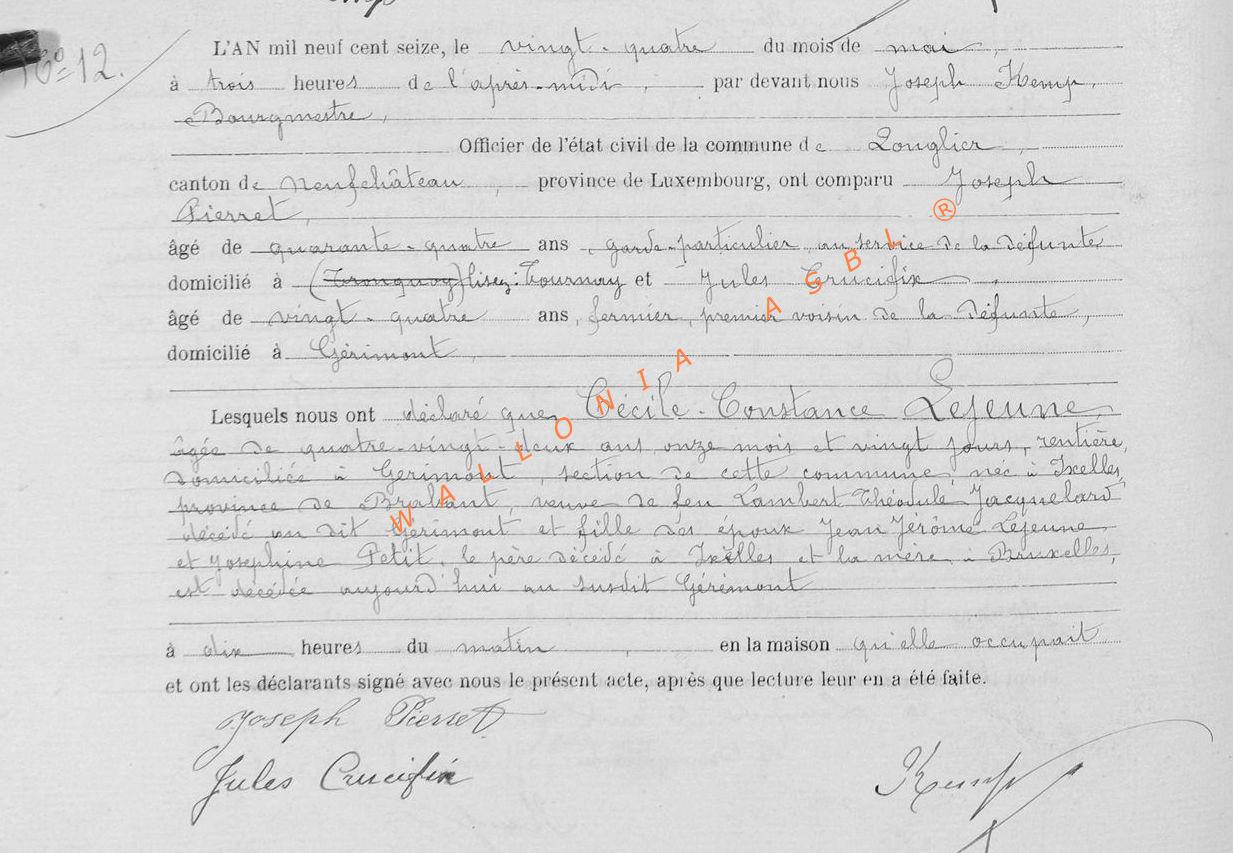 N° 12.
L'AN mil neuf cent seize, le vingt-quatre du mois de mai,
à trois heures de l'après-midi, par devant nous Joseph Kemp,
Bourgmestre,
Officier de l'état civil de la commune de Longlier,
canton de Neufchâteau, province de Luxembourg, ont comparu Joseph
Pierret,
âgé de quarante-quatre ans, garde-particulier au service de la défunte
domicilié à (Tronquoy) lisez: Tournay et Jules Crucifix,
âgé de vingt-quatre ans, fermier, premier voisin de la défunte,
domicilié à Gérimont,
Lesquels nous ont déclaré que Cécile-Constance Lejeune,
âgée de quatre-vingt-deux ans onze mois et vingt jours, rentière,
domiciliée à Gérimont, section de cette commune, née à Ixelles,
province de Brabant, veuve de feu Lambert Théodule Jacquelard
décédé au dit Gérimont et fille des époux Jean Jérôme Lejeune
et Joséphine Petit, le père décédé à Ixelles et la mère à Bruxelles,
est décédée aujourd'hui au susdit Gérimont
à dix heures du matin, en la maison qu'elle occupait
et ont les déclarants signé avec nous le présent acte, après que lecture leur en a été faite.
Joseph Pierret
Jules Crucifix
Kemp
WALLONIA ASBL ®